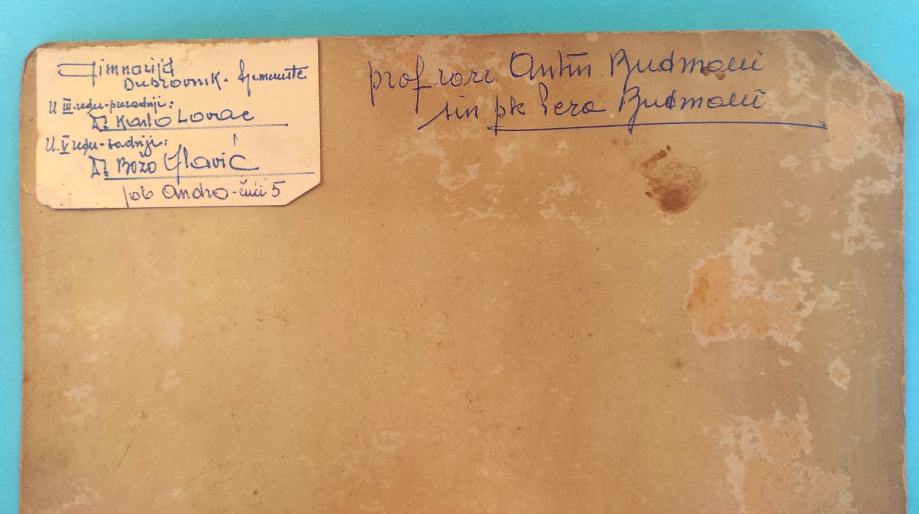 Gimnazija
Dubrovnik.
U III redu-predzadnji:
Dr Karlo Lovac
U V redu-zadnji:
Dr Božo Glavić
job Andro-čući 5
prof Antun Budmani
sin pk Pera Budmani